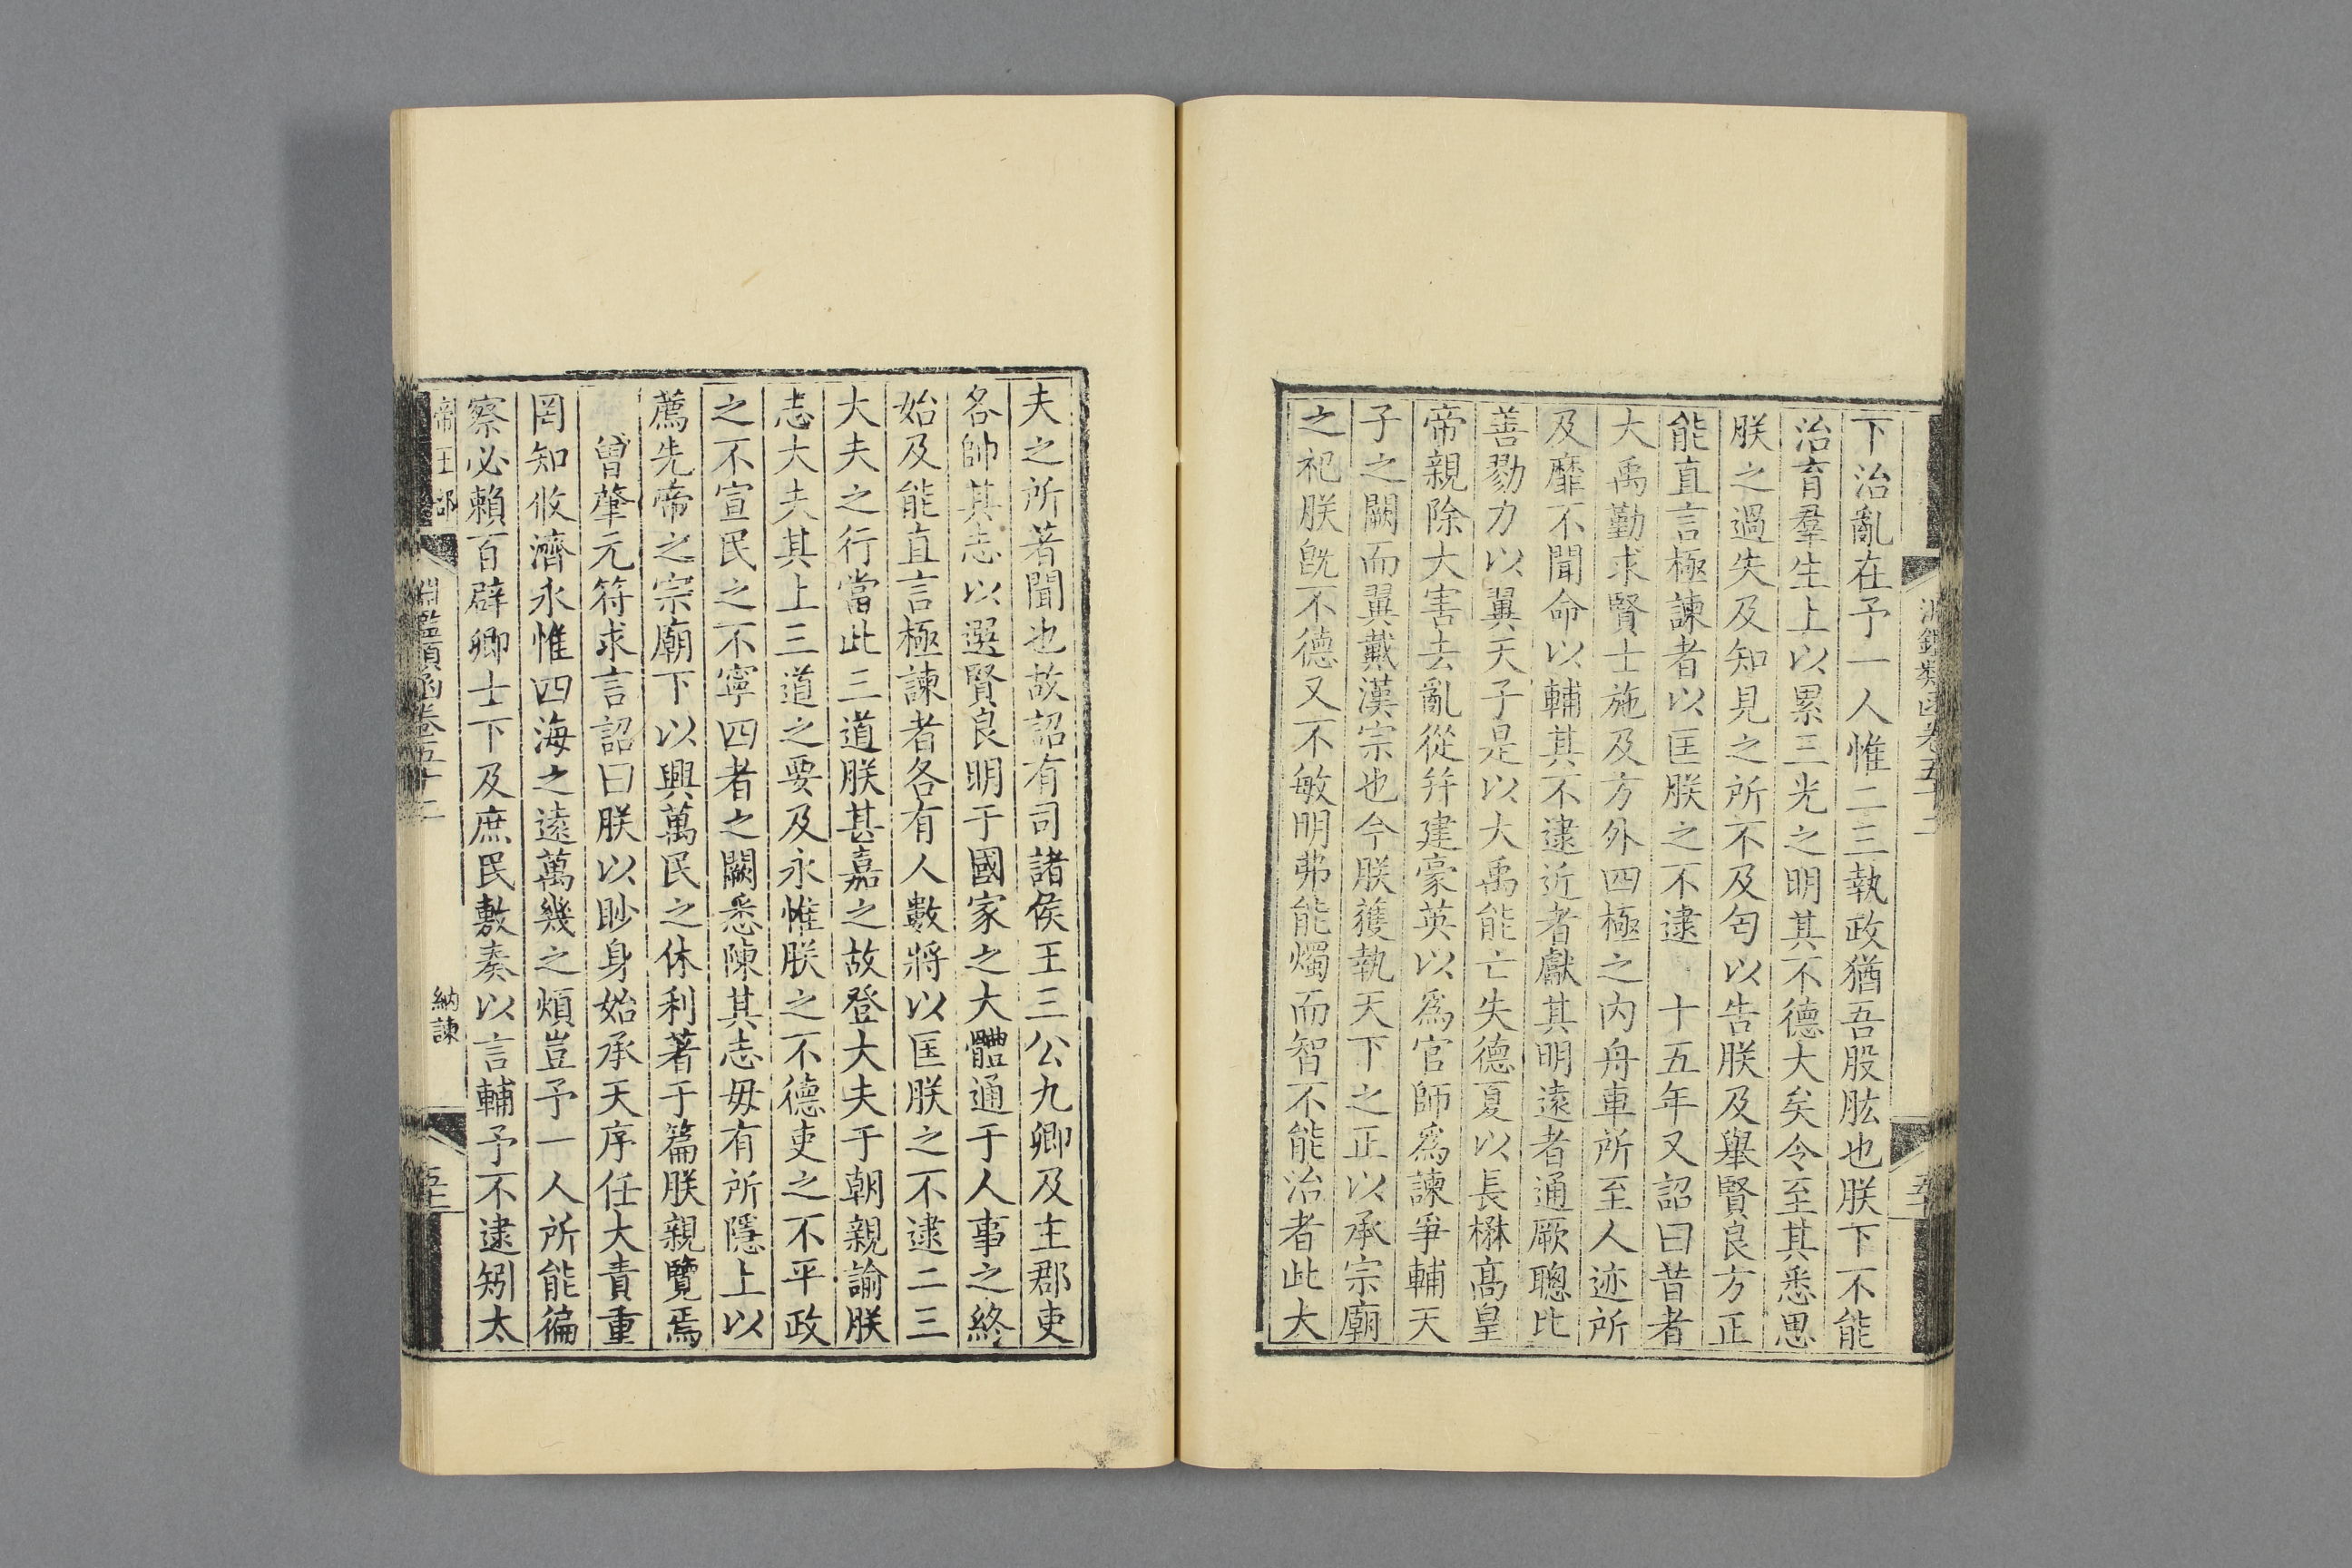 淵鑑類函卷五十二
下治亂在予一人惟二三執政猶吾股肱也朕下不能
治育羣生上以累三光之明其不德大矣令至其悉思
朕之過失及知見之所不及匄以告朕及舉賢良方正
能直言極諫者以匡朕之不逮 十五年又詔曰昔者
大禹勤求賢士施及方外四極之內舟車所至人迹所
及靡不聞命以輔其不逮近者獻其明遠者通厥聰比
善勠力以翼天子是以大禹能亡失德夏以長楙高皇
帝親除大害去亂從并建豪英以爲官師爲諫爭輔天
子之闕而翼戴漢宗也今朕獲執天下之正以承宗廟
之祀朕旣不德又不敏明弗能燭而智不能治者此大
夫之所著聞也故詔有司諸侯王三公九卿及主郡吏
各帥其志以選賢良明于國家之大體通于人事之終
始及能直言極諫者各有人數將以匡朕之不逮二三
大夫之行當此三道朕甚嘉之故登大夫于朝親諭朕
志大夫其上三道之要及永惟朕之不德吏之不平政
之不宣民之不寧四者之闕悉陳其志毋有所隱上以
薦先帝之宗廟下以興萬民之休利著于篇朕親覽焉
曾肇元符求言詔曰朕以眇身始承天序任大責重
罔知攸濟永惟四海之遠萬幾之煩豈予一人所能徧
察必賴百辟卿士下及庶民敷奏以言輔予不逮矧太
帝王部
淵鑑類函卷五十二
納諫